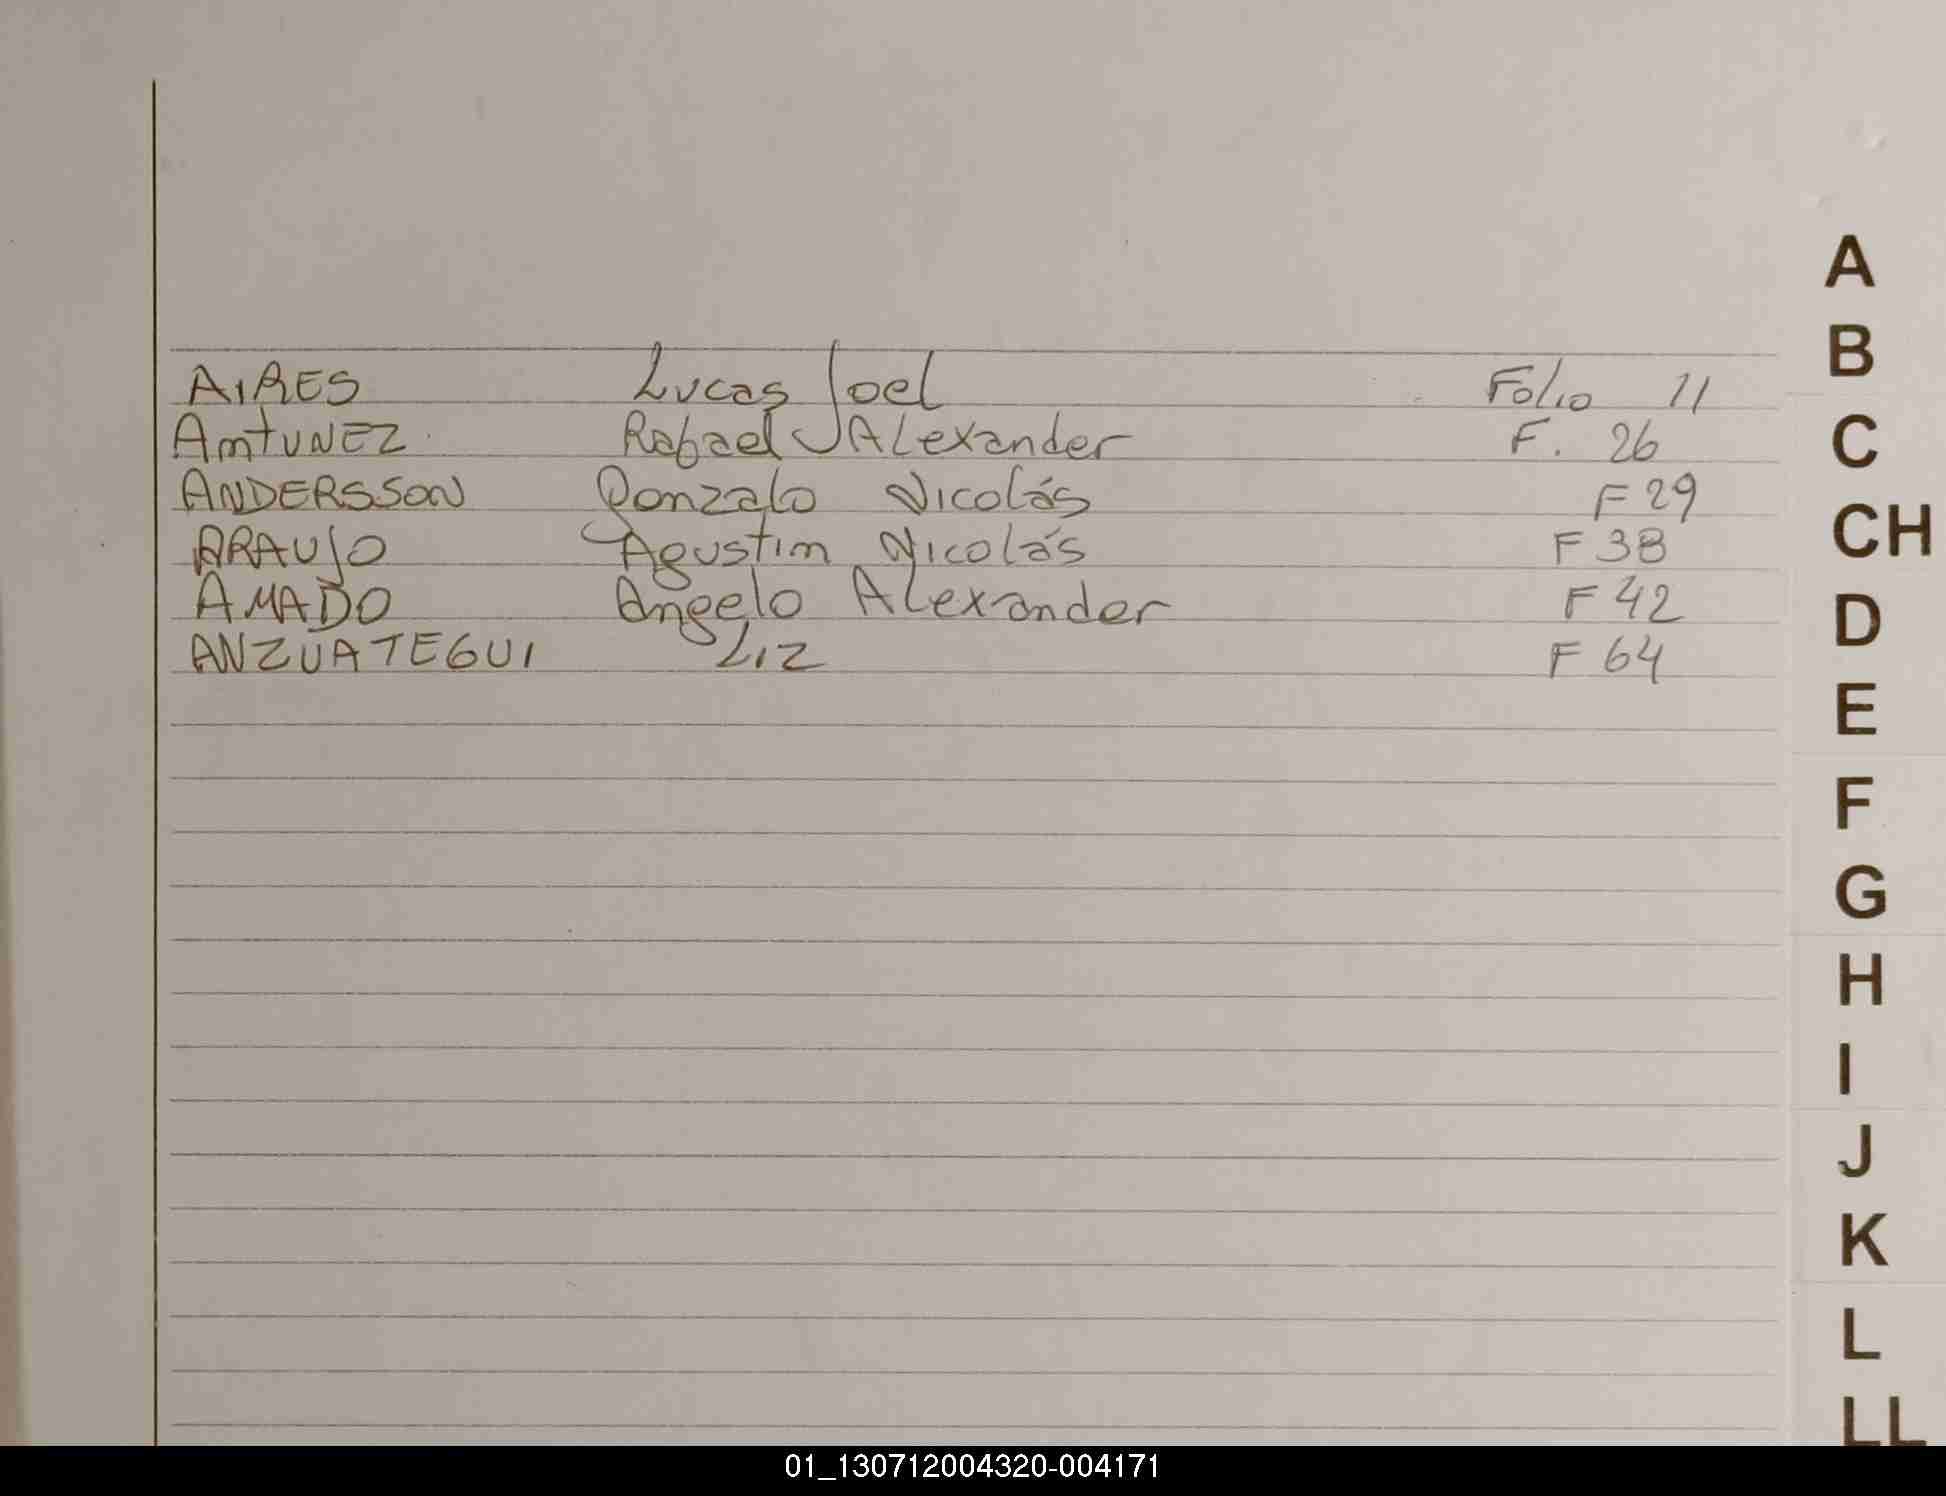 AIRES Lucas Joel Folio 11
AmtUNEZ Rafael Alexander F. 26
ANDERSSON Gonzalo Nicolás F 29
ARAUJO Agustim Nicolás F 38
AMADO Angelo Alexander F 42
ANZUATEGUI Liz F 64
A
B
C
CH
D
E
F
G
H
I
J
K
L
LL
01_130712004320-004171